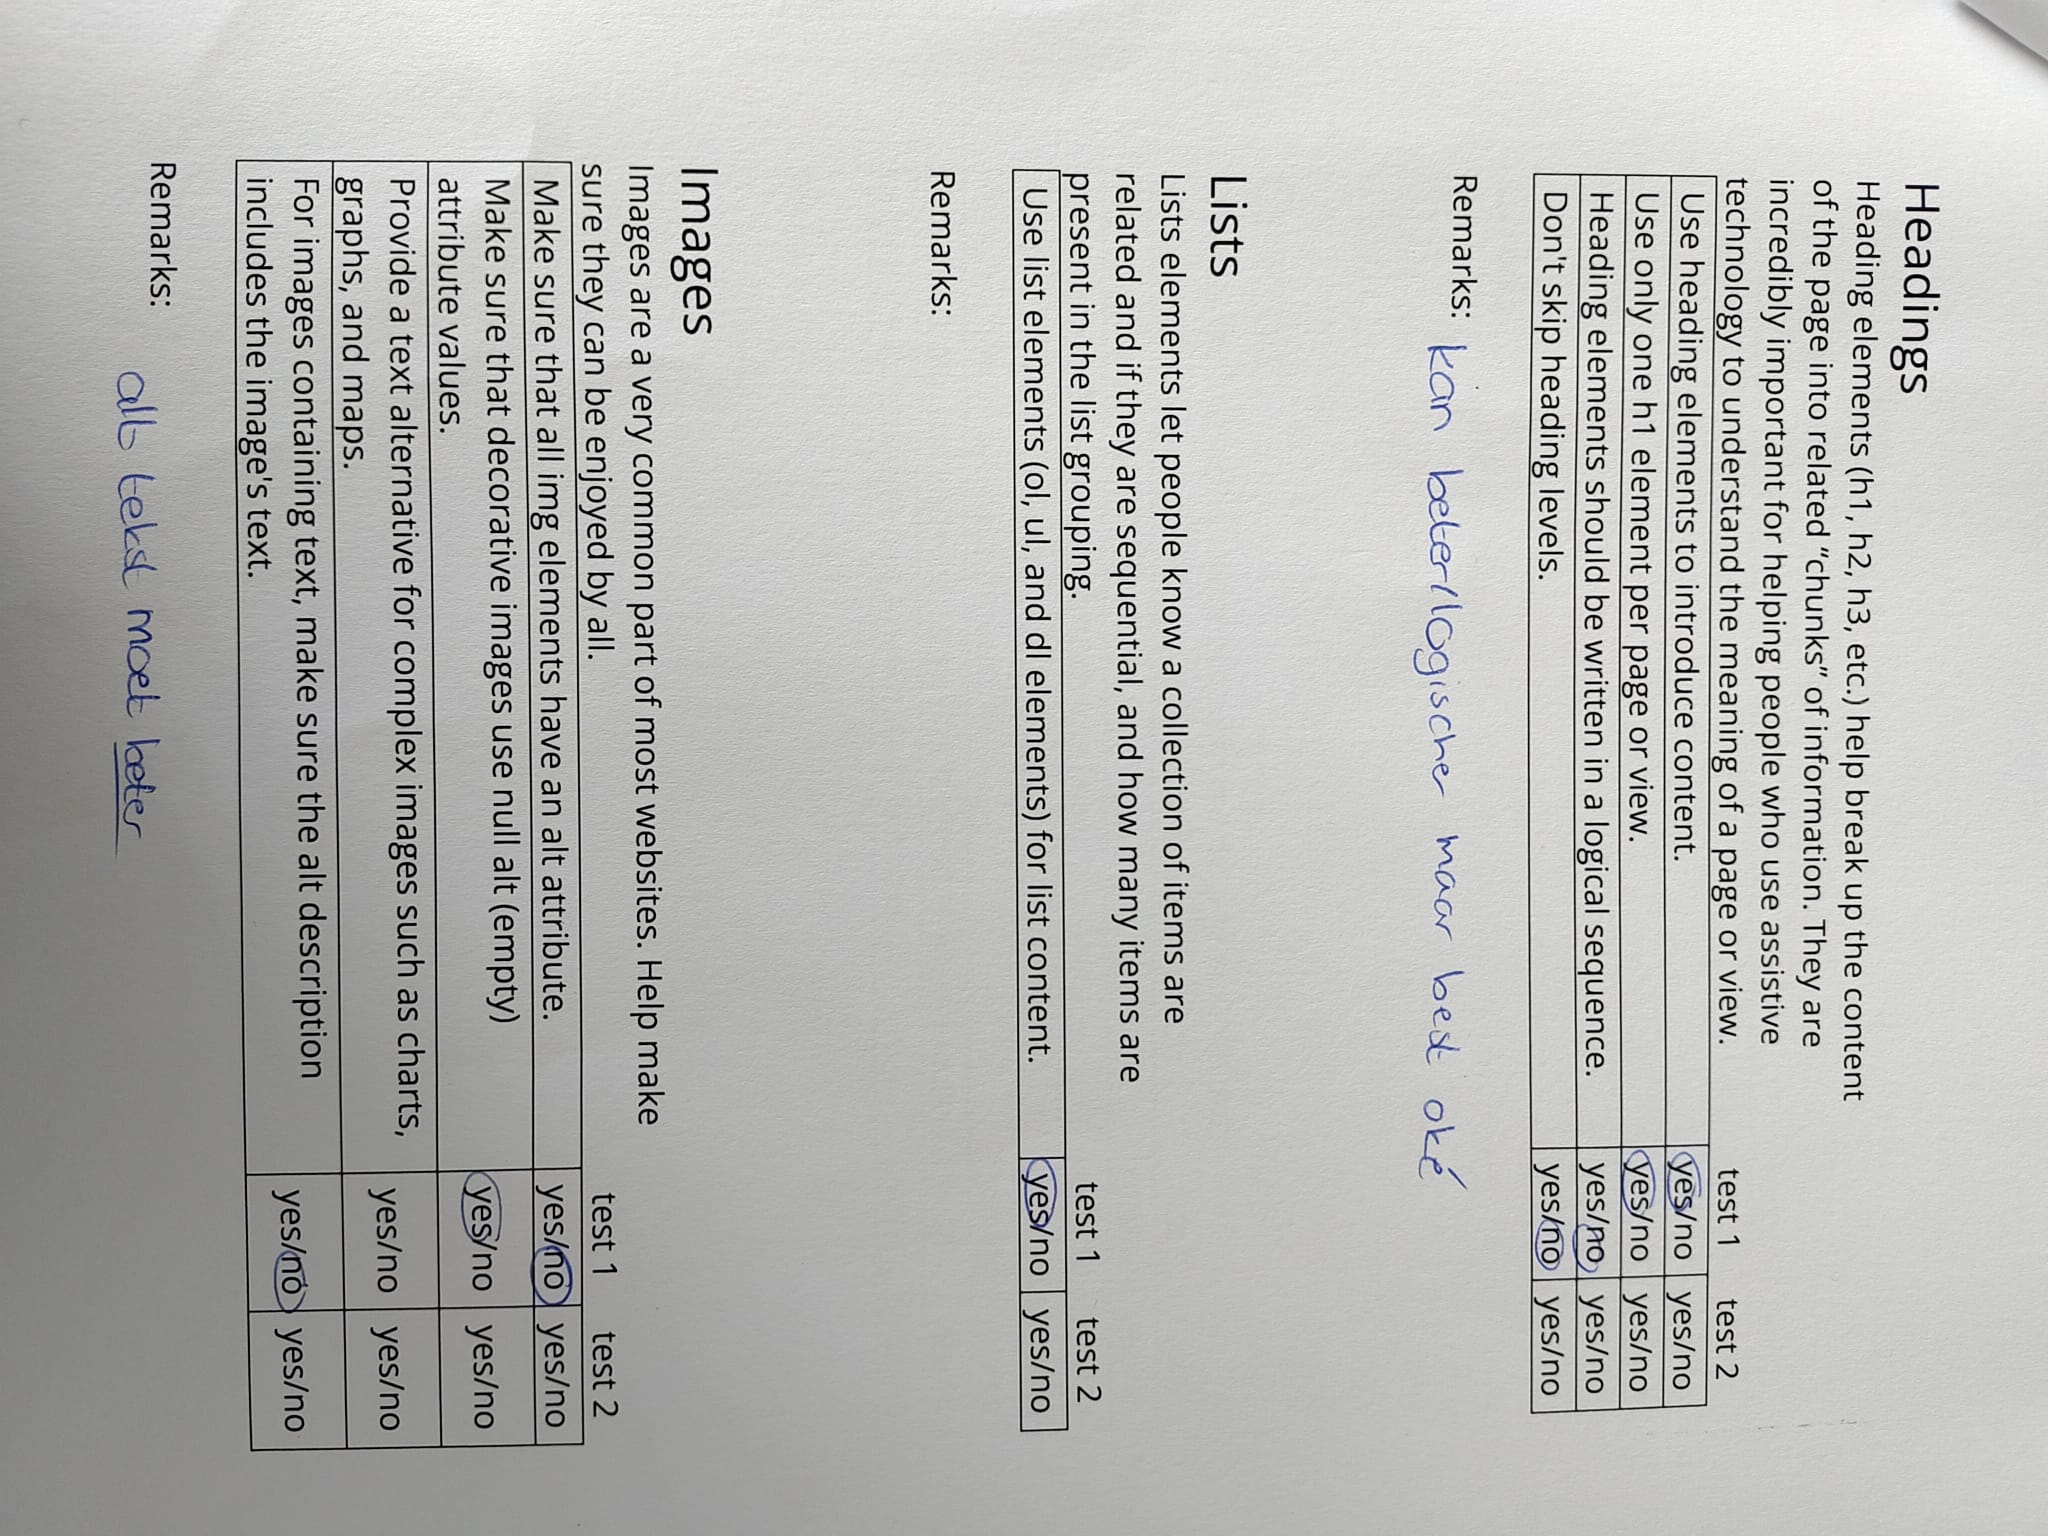 Headings
Heading elements (h1, h2, h3, etc.) help break up the content
of the page into related "chunks" of information. They are
incredibly important for helping people who use assistive
technology to understand the meaning of a page or view. test 1 test 2
Use heading elements to introduce content. yes/no yes/no
Use only one h1 element per page or view. yes/no yes/no
Heading elements should be written in a logical sequence. yes/no yes/no
Don't skip heading levels. yes/no yes/no
Remarks: kan beter/logischer maar best oké
Lists
Lists elements let people know a collection of items are
related and if they are sequential, and how many items are
present in the list grouping. test 1 test 2
Use list elements (ol, ul, and dl elements) for list content. yes/no yes/no
Remarks:
Images
Images are a very common part of most websites. Help make
sure they can be enjoyed by all. test 1 test 2
Make sure that all img elements have an alt attribute. yes/no yes/no
Make sure that decorative images use null alt (empty)
attribute values. yes/no yes/no
Provide a text alternative for complex images such as charts,
graphs, and maps. yes/no yes/no
For images containing text, make sure the alt description
includes the image's text. yes/no yes/no
Remarks: alt tekst moet beter